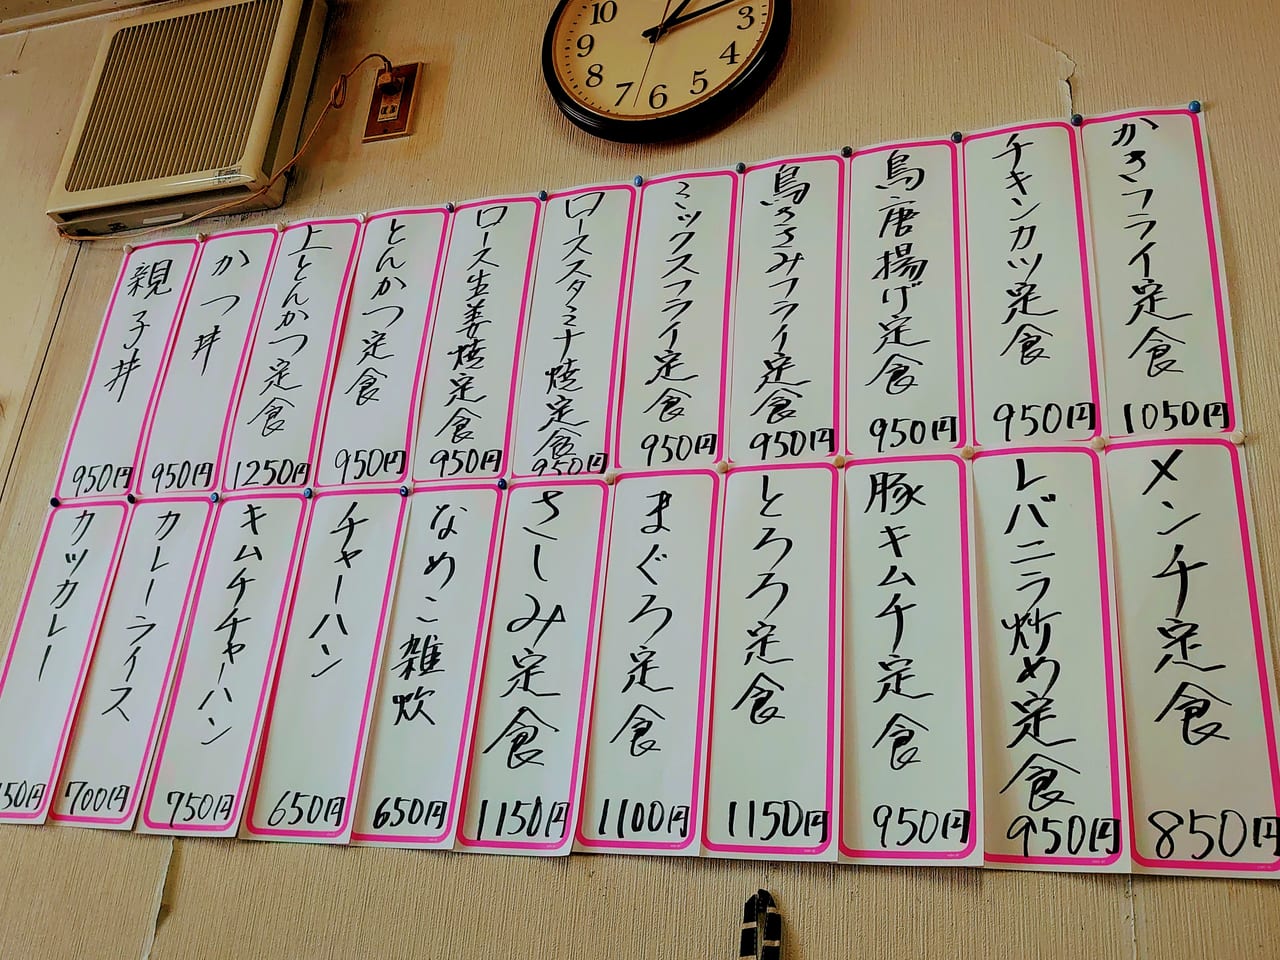 10
9
8
7
6
5
4
3
かきフライ定食
1050円
チキンカツ定食
950円
鳥唐揚げ定食
950円
鳥ささみフライ定食
950円
ミックスフライ定食
950円
ローススタミナ焼定食
950円
ロース生姜焼定食
950円
とんかつ定食
950円
上とんかつ定食
1250円
かつ丼
950円
親子丼
950円
メンチ定食
850円
レバニラ炒め定食
950円
豚キムチ定食
950円
とろろ定食
1150円
まぐろ定食
1100円
さしみ定食
1150円
なめこ雑炊
650円
チャーハン
650円
キムチチャーハン
750円
カレーライス
700円
カツカレー
50円